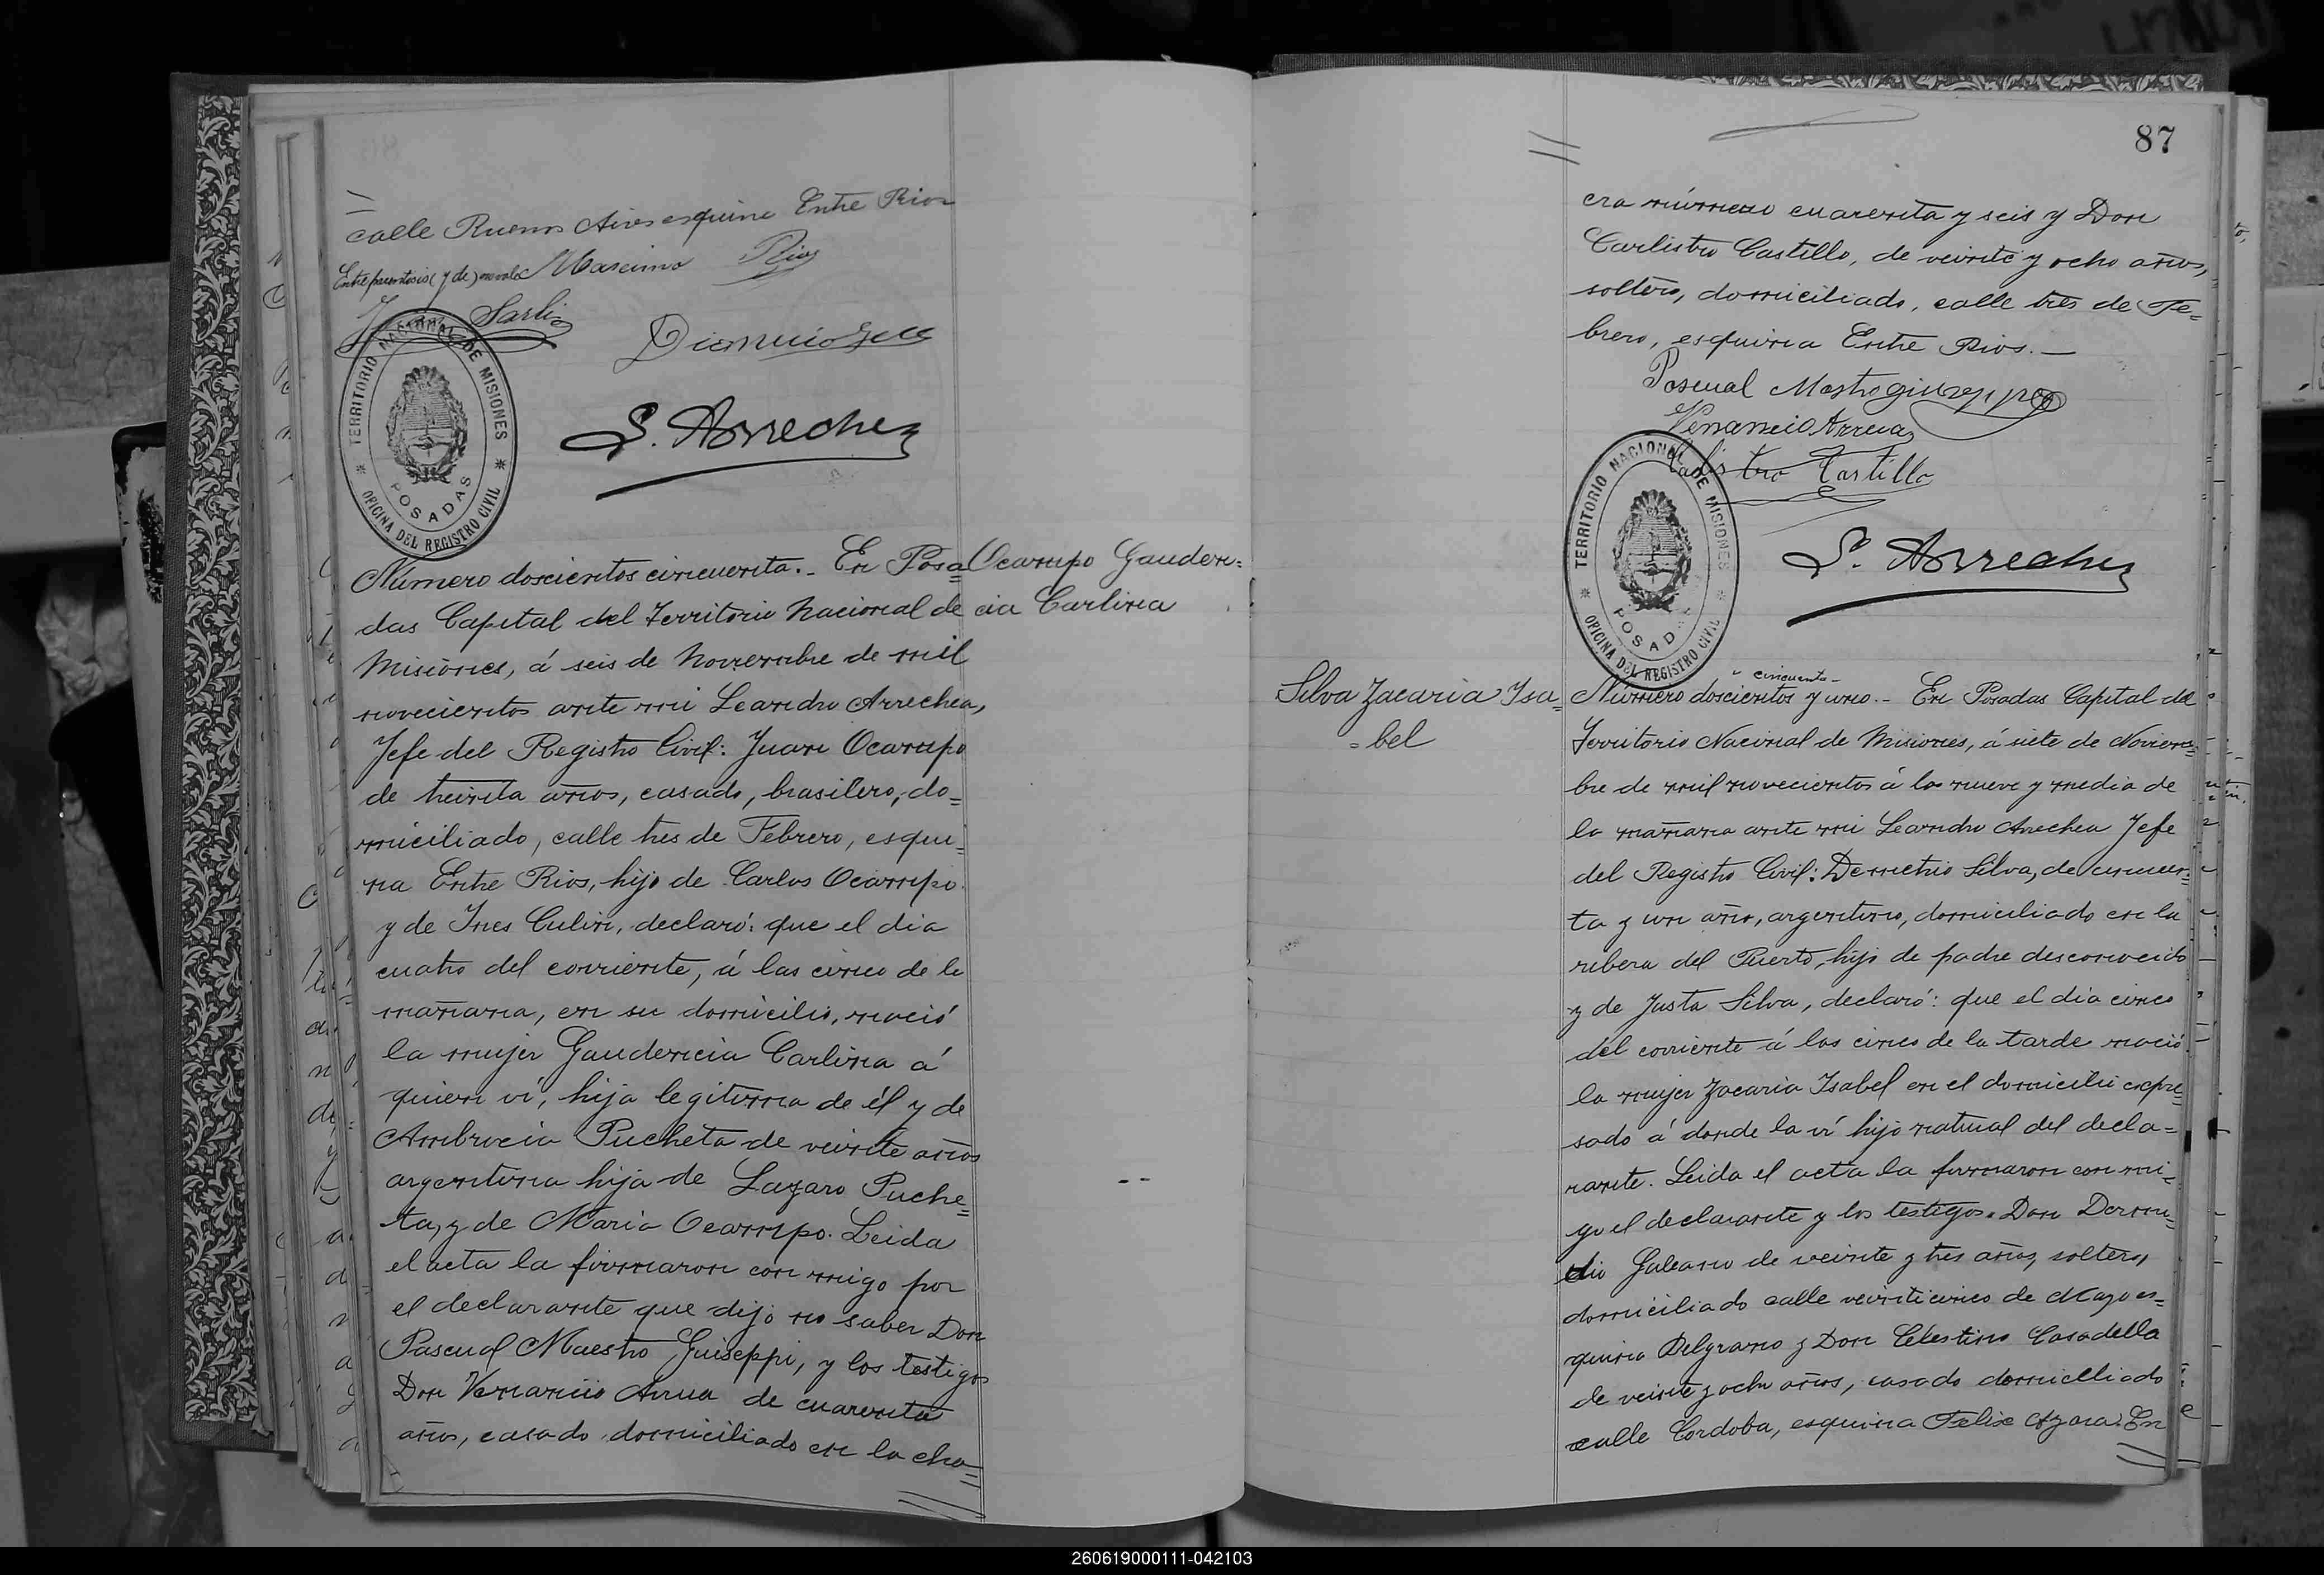 calle Buenos Aires esquina Entre Rios
Entre parentesis (y de) no vale Maximo Rios
Sarli
Dionicio
S. Arrechea
TERRITORIO NACIONAL DE MISIONES
POSADAS
OFICINA DEL REGISTRO CIVIL
Ocampo Gauden=
cia Carlina
Número doscientos cincuenta._ En Posa=
das Capital del Territorio Nacional de
Misiones, á seis de Noviembre de mil
novecientos ante mi Leandro Arrechea,
Jefe del Registro Civil: Juan Ocampo
de treinta años, casado, brasilero, do=
miciliado, calle tres de Febrero, esqui=
na Entre Rios, hijo de Carlos Ocampo
y de Ines Culin, declaró: que el dia
cuatro del corriente, á las cinco de la
mañana, en su domicilio, nació
la mujer Gaudencia Carlina á
quien ví, hija legitima de él y de
Ambrocia Pucheta de veinte años
argentina hija de Lazaro Puche=
ta, y de Maria Ocampo. Leida
el acta la firmaron con migo por
el declarante que dijo no saber Don
Pascual Maestro Guiseppi, y los testigos
Don Venancio Arrua de cuarenta
años, casado domiciliado en la cha=
87
cra número cuarenta y seis y Don
Carlistro Castillo, de veinte y ocho años,
soltero, domiciliado, calle tres de Fe=
brero, esquina Entre Rios._
Pascual Mastrogiuseppe
Venancio Arrua
Castillo
S. Arrechea
TERRITORIO NACIONAL DE MISIONES
POSADAS
OFICINA DEL REGISTRO CIVIL
Silva Zacaria Isa=
=bel
" cincuenta _
Número doscientos y uno._ En Posadas Capital del
Territorio Nacional de Misiones, á siete de Noviem=
bre de mil novecientos á las nueve y media de
la mañana ante mi Leandro Arrechea Jefe
del Registro Civil: Demetrio Silva, de cincuen=
ta y un año, argentino, domiciliado en la
ribera del Puerto, hijo de padre desconocido
y de Justa Silva, declaró: que el dia cinco
del corriente á las cinco de la tarde nació
la mujer Zacaria Isabel en el domicilio expre=
sado á donde la ví hija natural del decla=
rante. Leida el acta la firmaron con mi=
go el declarante y los testigos. Don
Galeano de veinte y tres años, soltero,
domiciliado calle veinticinco de Mayo es=
quina Belgrano y Don Celestino Casadella
de veinte y ocho años, casado domicilliado
calle Cordoba, esquina Felix Azara. En
260619000111-042103